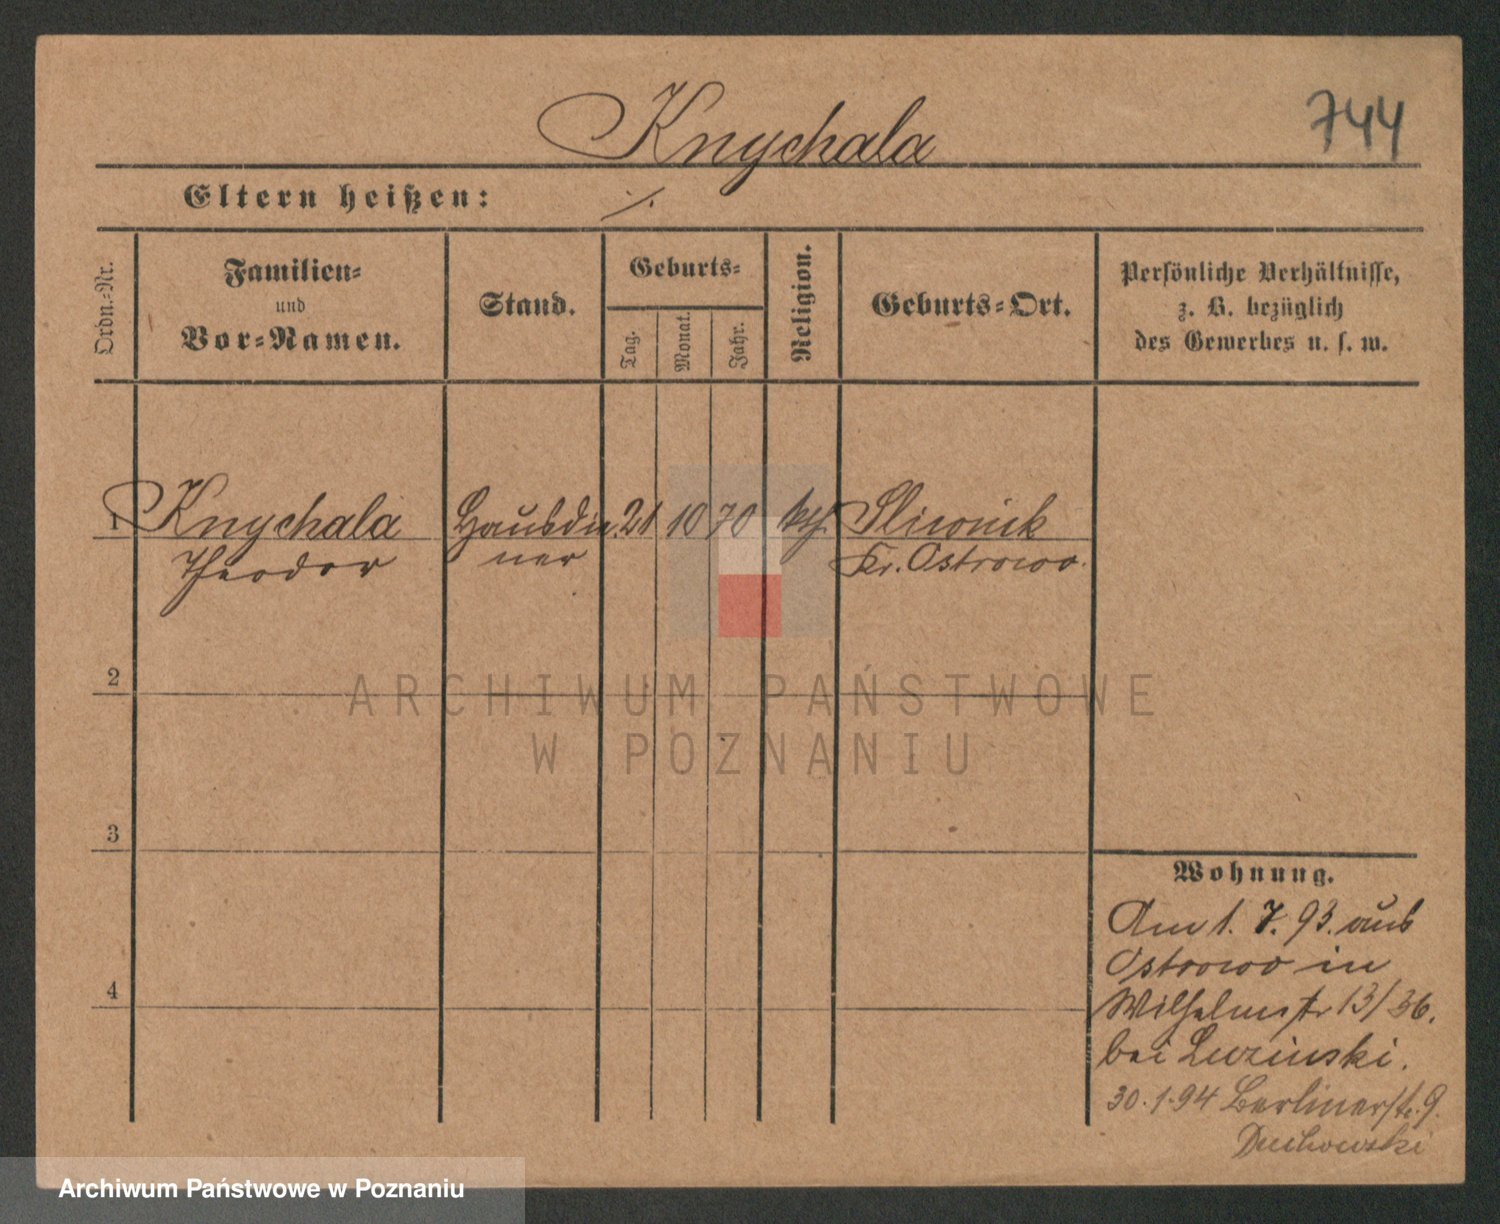 Knychala
744
Eltern heißen: ./.
Ordn.-Nr.
Familien-
und
Vor-Namen.
Stand.
Geburts-
Tag.
Monat.
Jahr.
Religion.
Geburts-Ort.
Persönliche Verhältnisse,
z. B. bezüglich
des Gewerbes u. s. w.
1 Knychala Hausdie 21 10 70 kth. Sliwnik
Theodor ner Kr. Ostrowo.
2
3
4
Wohnung.
Am 1. 7. 93. aus
Ostrowo in
Wilhelmstr 13/36.
bei Luzinski.
30.1.94 Berlinerstr. 9.
Duchowski
ARCHIWUM PAŃSTWOWE
W POZNANIU
Archiwum Państwowe w Poznaniu